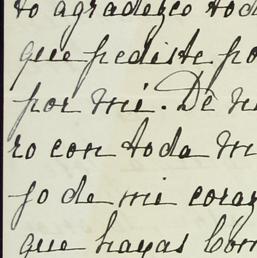 to agradezco tod
que pediste po
por mí. De n
ro con toda m
fo de mi coraz
que hayas